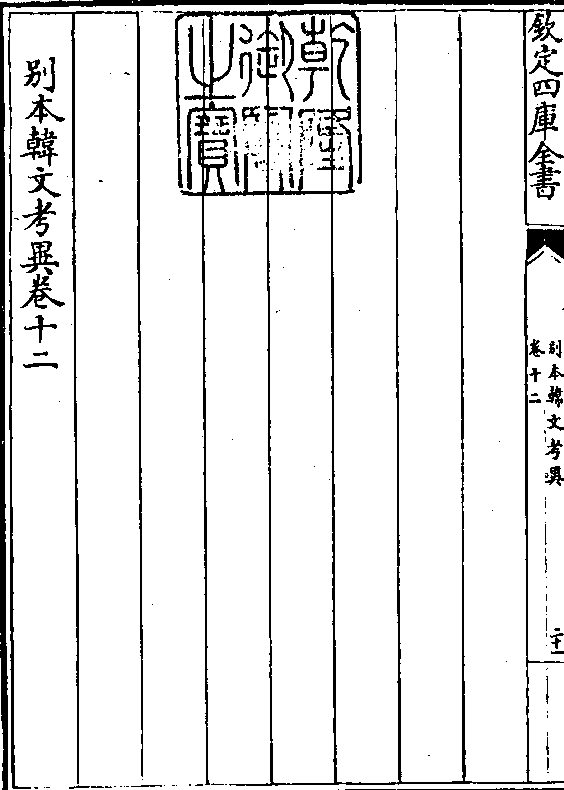 欽定四庫全書
别本韓文考異
卷十二
二十一
乾隆
御覽
之寶
别本韓文考異卷十二